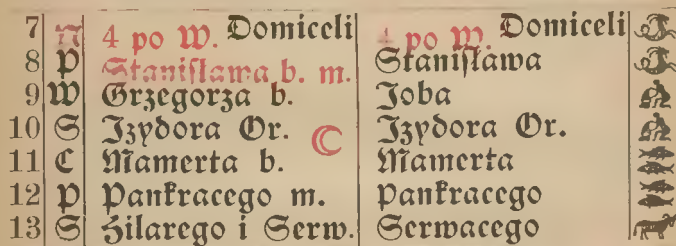 7 N 4 po W. Domiceli 4 po W. Domiceli
8 P Stanisława b. m. Stanisława
9 W Grzegorza b. Joba
10 S Izydora Or. Izydora Or.
11 C Mamerta b. Mamerta
12 P Pankracego m. Pankracego
13 S Hilarego i Serw. Serwacego